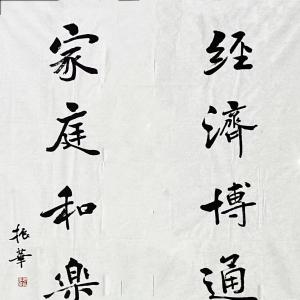 經濟博通
家庭和樂
振華